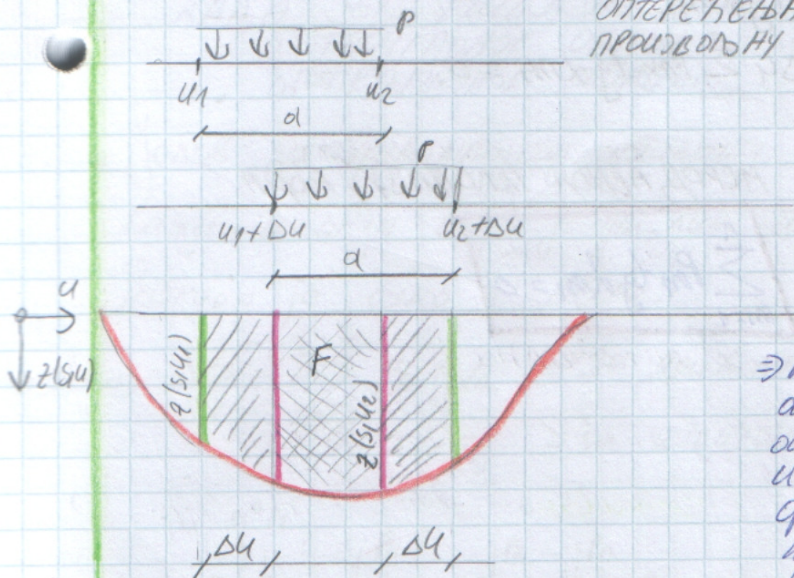 ОПТЕРЕЋЕЊА
ПРОИЗВОЉНУ
P
u1 u2
a
P
u1+Δu u2+Δu
a
u
z(s,u)
z(s,u1)
F
z(s,u2)
Δu Δu